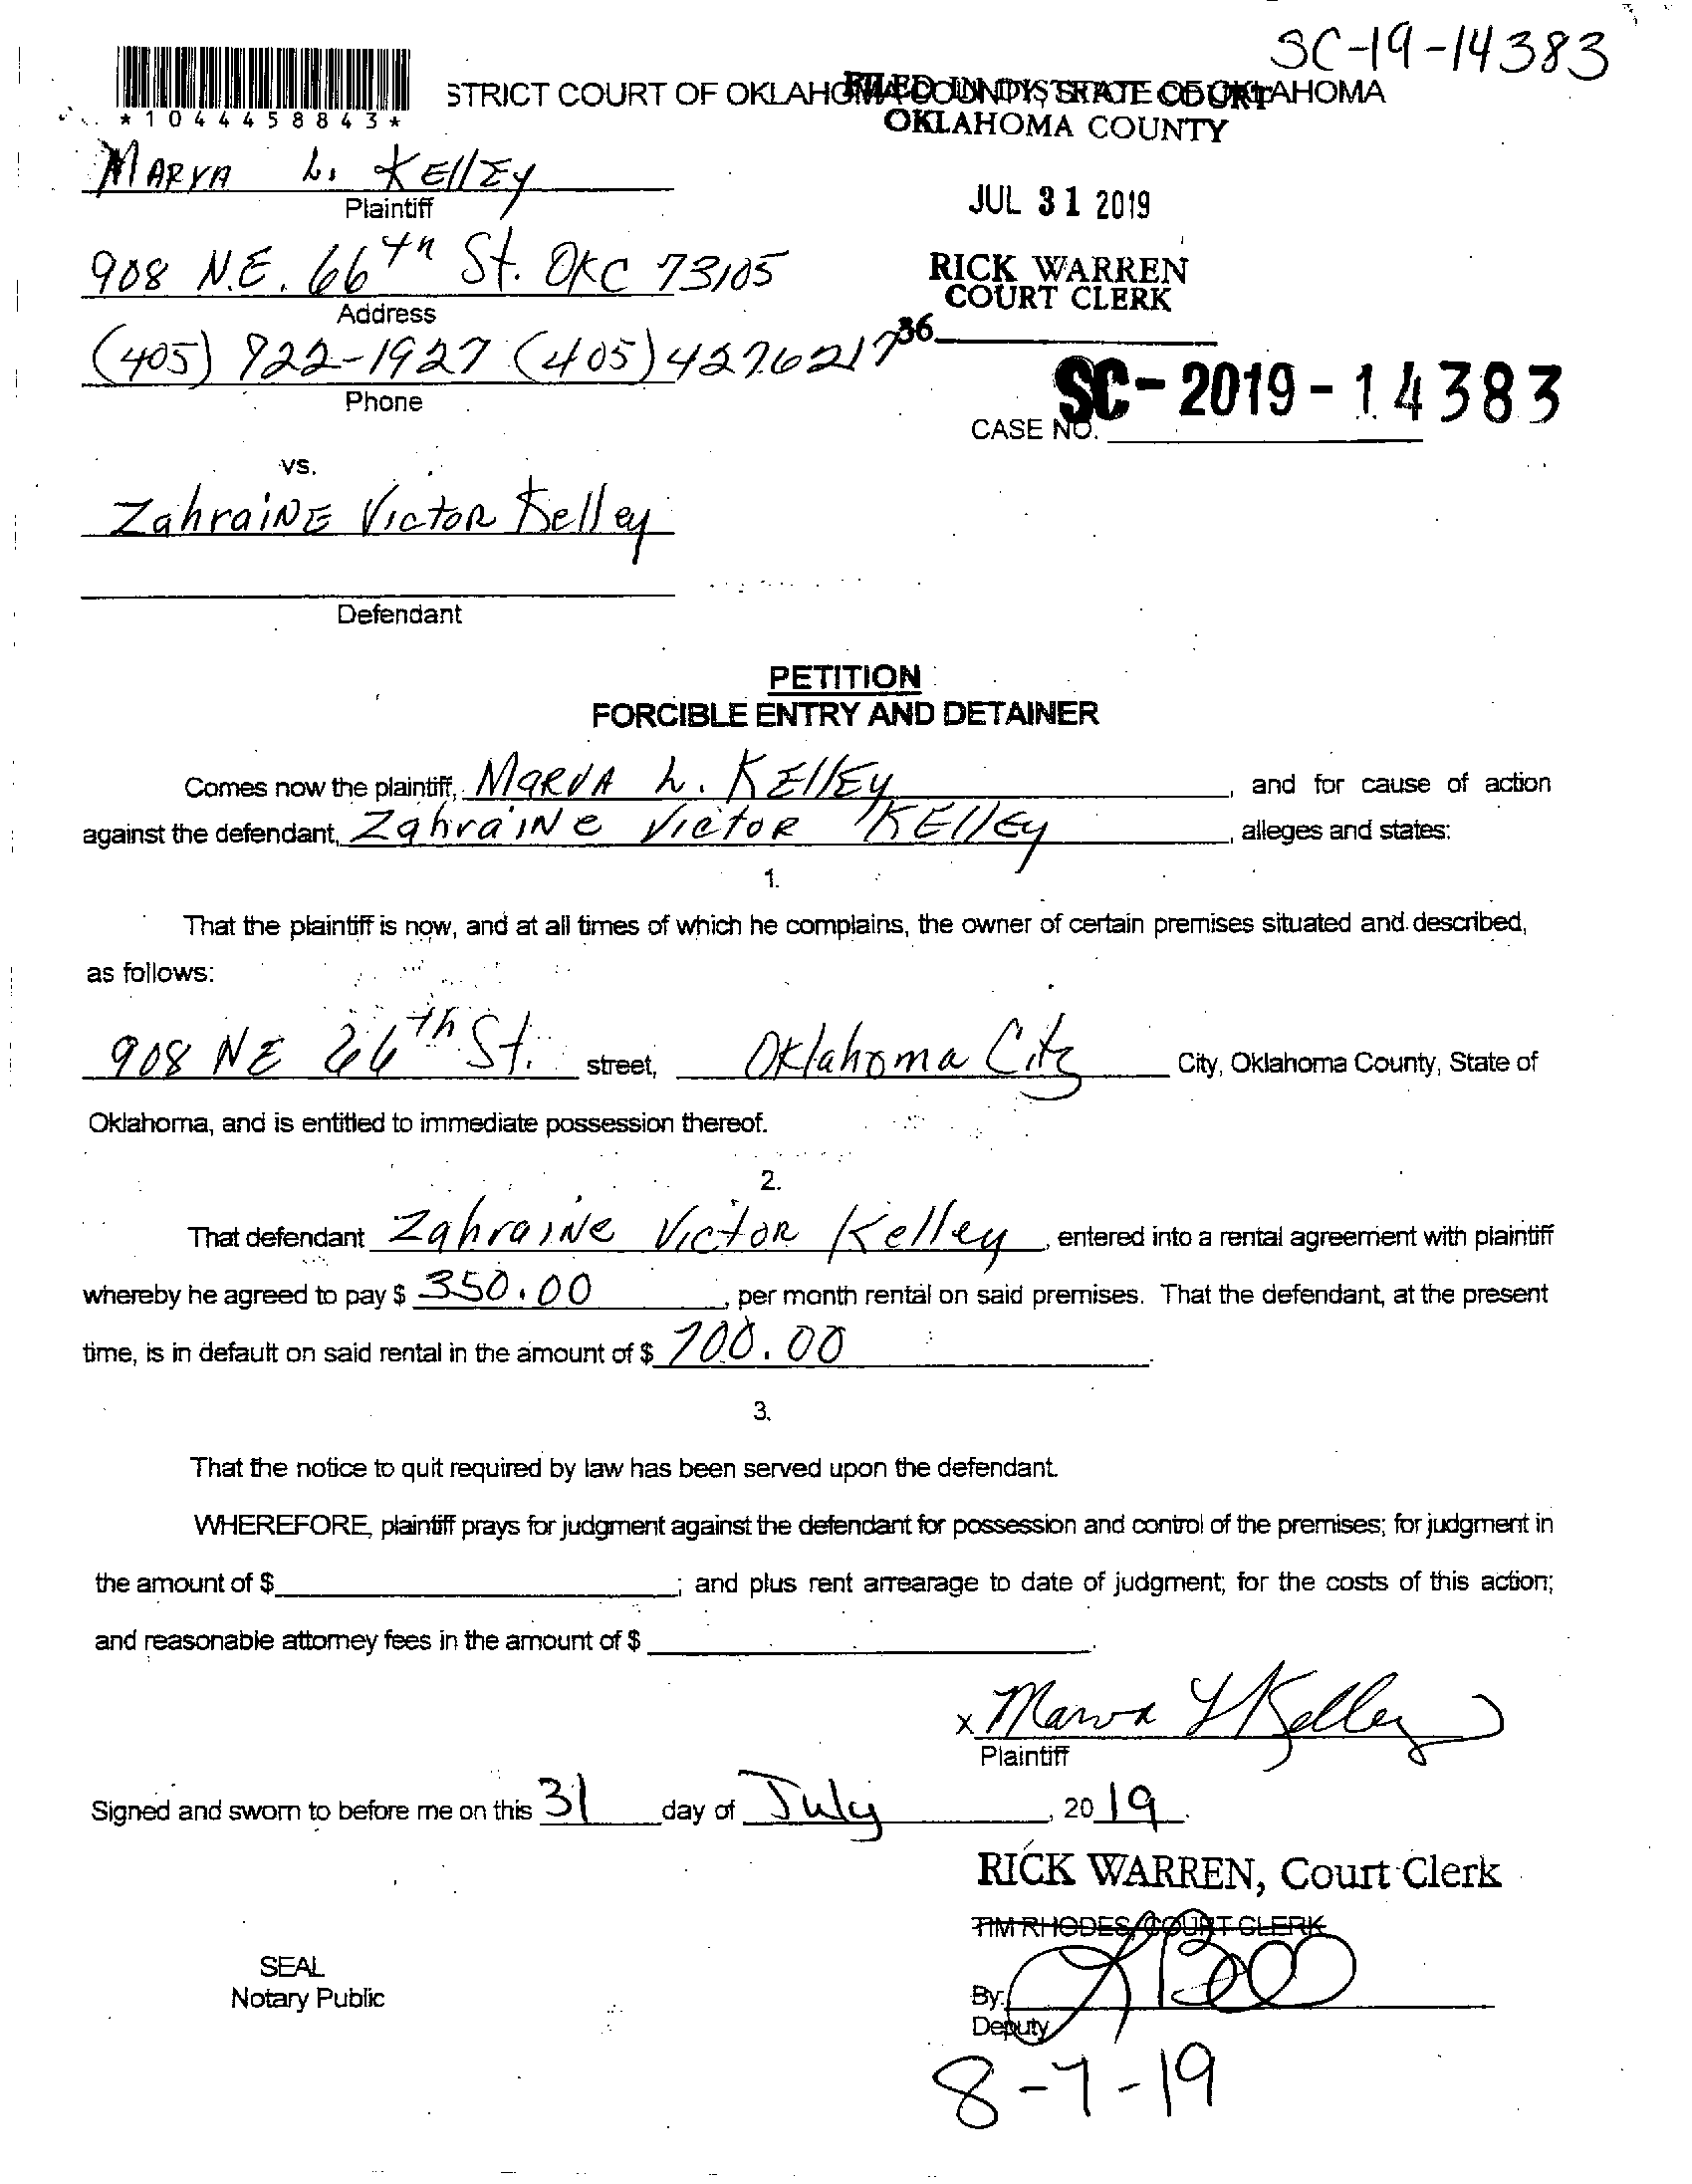 SC-19-14383
*1044458843*
STRICT COURT OF OKLAHOMA COUNTY, STATE OF OKLAHOMA
FILED IN DISTRICT COURT
OKLAHOMA COUNTY
MARVA L. KEllEy
Plaintiff
JUL 31 2019
908 N.E. 66th St. OKC 73105
RICK WARREN
COURT CLERK
Address
(405) 722-1927 (405) 427.6217
36
Phone
SC-2019-14383
CASE NO.
vs.
ZahraiNE VictoR Kelley
Defendant
PETITION
FORCIBLE ENTRY AND DETAINER
Comes now the plaintiff, MARVA L. KEllEy, and for cause of action
against the defendant, ZahraiNe VictoR KEllEy, alleges and states:
1.
That the plaintiff is now, and at all times of which he complains, the owner of certain premises situated and described,
as follows:
908 NE 66th St. street, Oklahoma City City, Oklahoma County, State of
Oklahoma, and is entitled to immediate possession thereof.
2.
That defendant ZahraiNe VictoR Kelley, entered into a rental agreement with plaintiff
whereby he agreed to pay $ 350.00, per month rental on said premises. That the defendant, at the present
time, is in default on said rental in the amount of $ 700.00.
3.
That the notice to quit required by law has been served upon the defendant.
WHEREFORE, plaintiff prays for judgment against the defendant for possession and control of the premises; for judgment in
the amount of $ ; and plus rent arrearage to date of judgment; for the costs of this action;
and reasonable attorney fees in the amount of $ .
x Marva L Kelley
Plaintiff
Signed and sworn to before me on this 31 day of July, 2019.
RICK WARREN, Court Clerk
TIM RHODES, COURT CLERK
SEAL
Notary Public
By:
Deputy
8-7-19